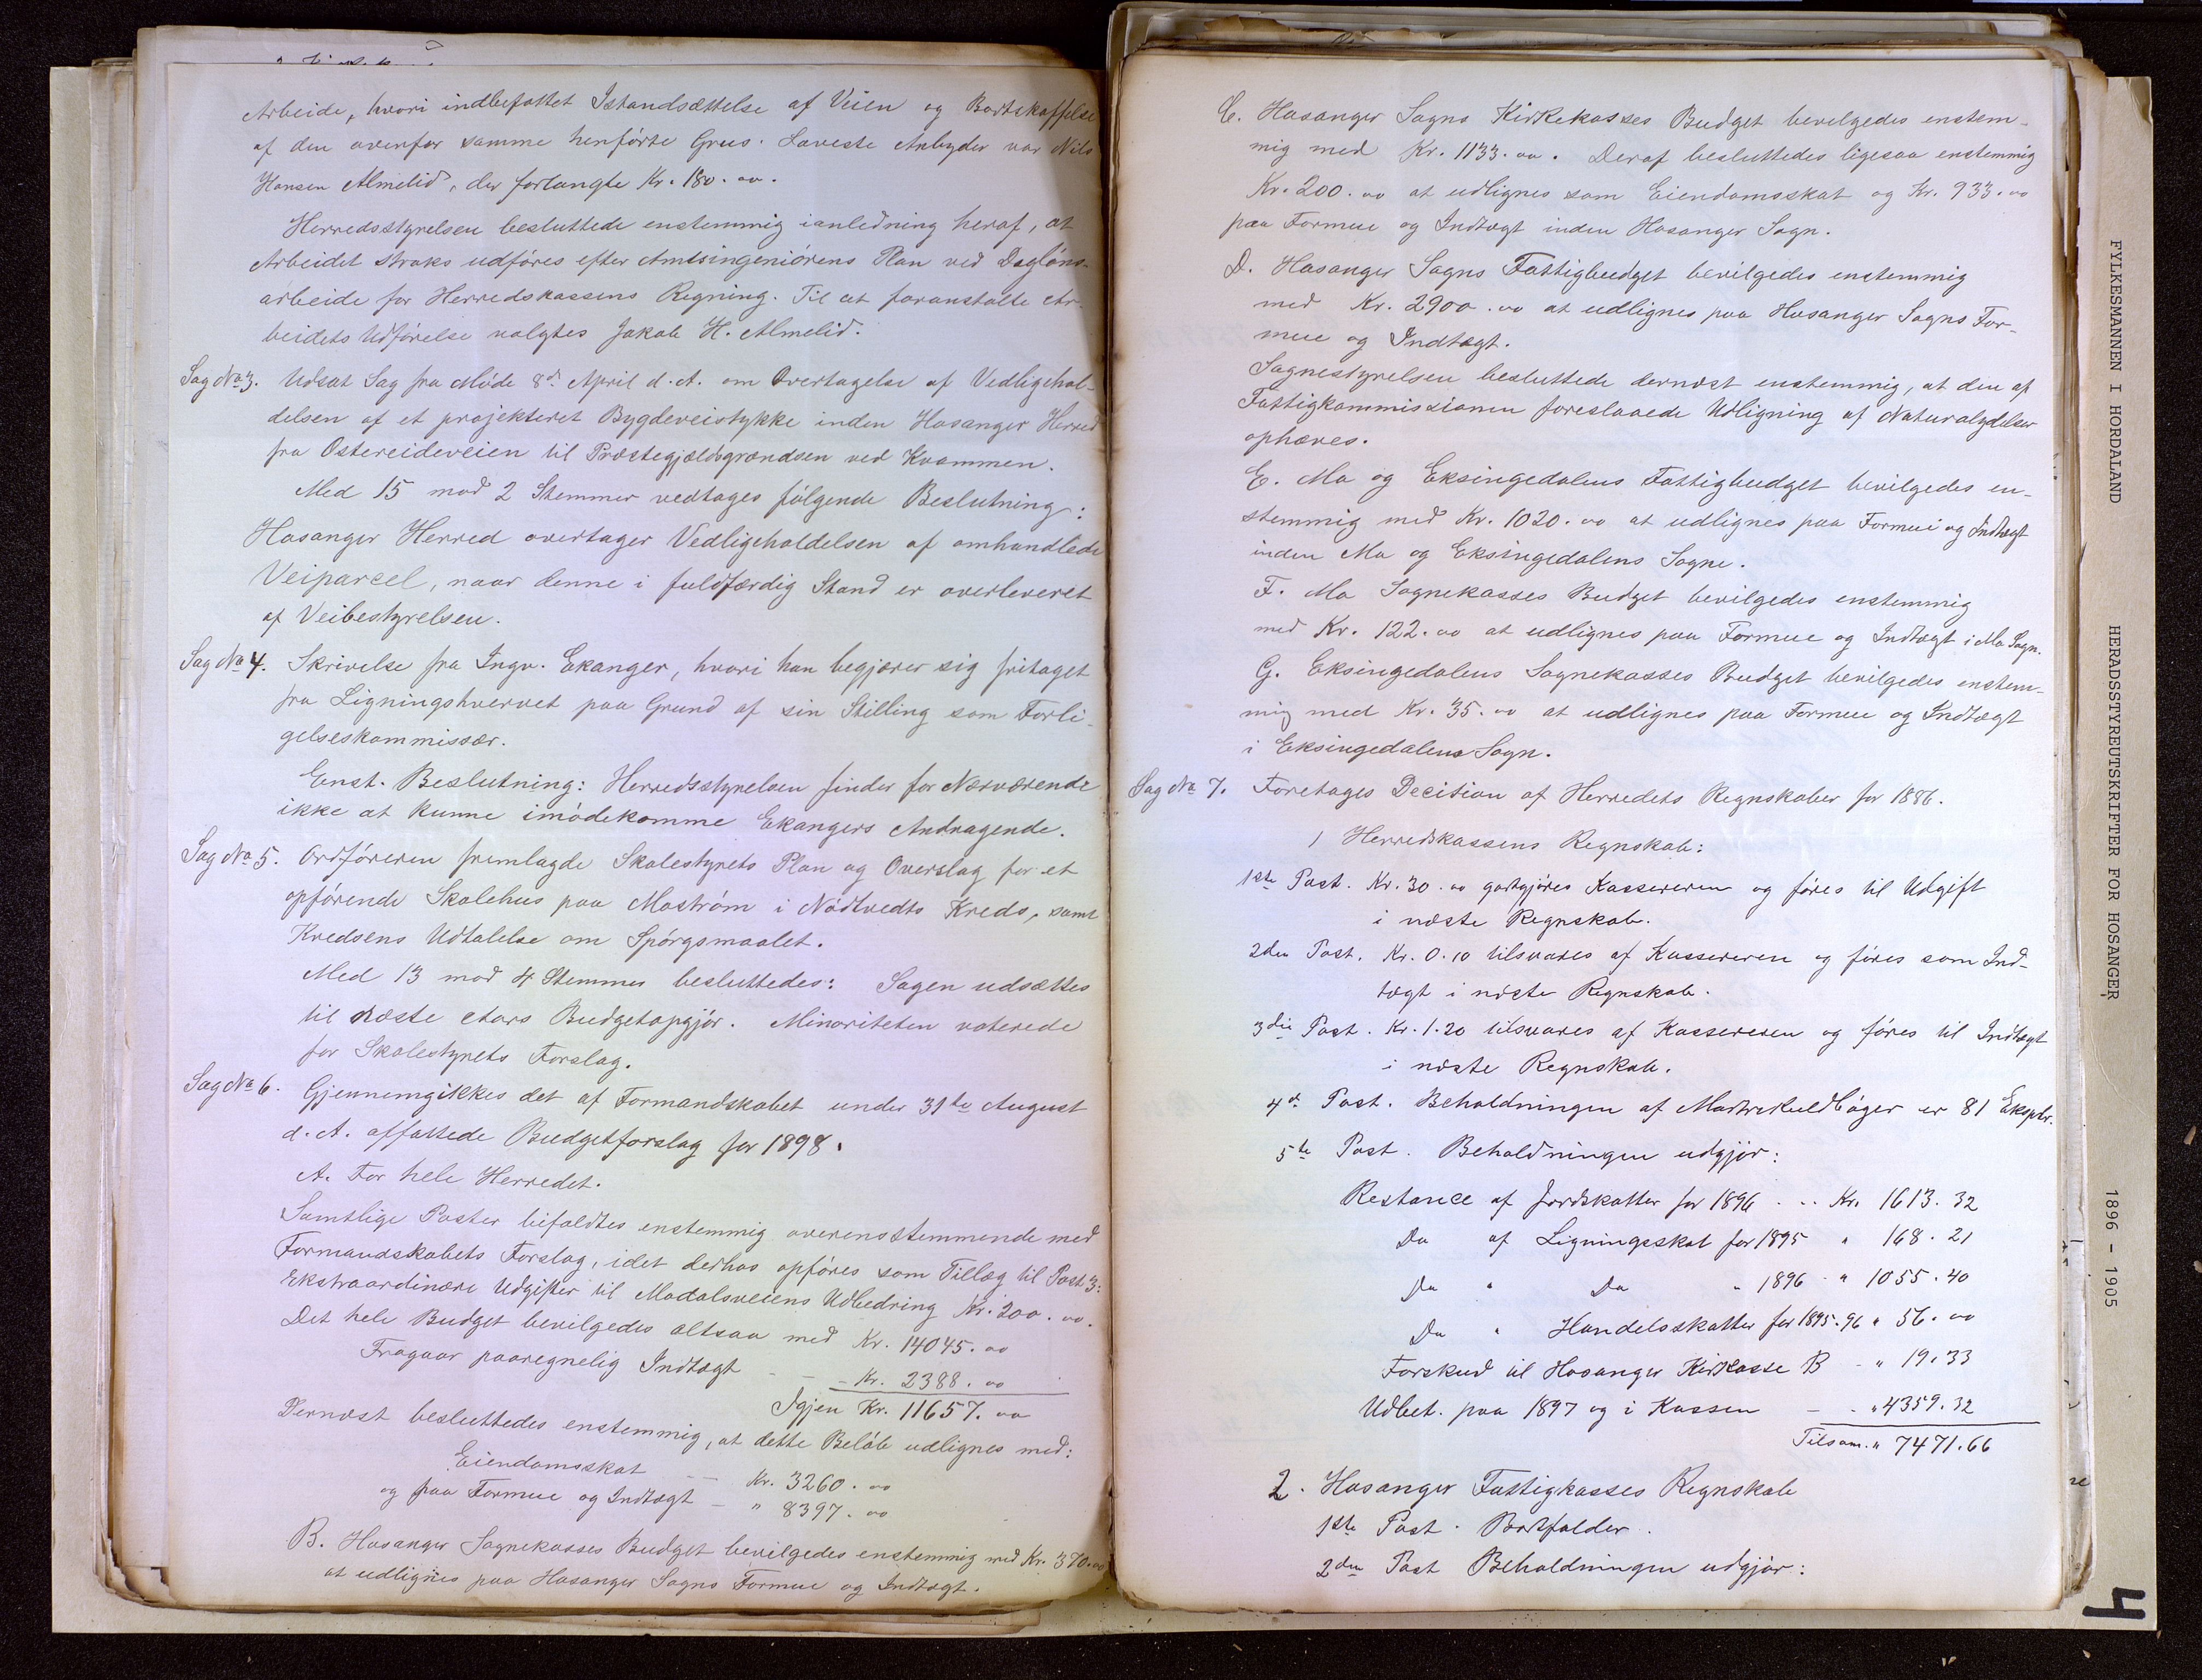 Arbeide, hvori indbefattet Istandsættelse af Veien og Bortskaffelse
af den ovenfor samme henførte Grus. Laveste Anbyder var Nils
Hansen Almelid, der forlangte Kr. 180.00.
Herredsstyrelsen besluttede enstemmig ianledning heraf, at
Arbeidet straks udføres efter Amtsingeniørens Plan ved Dagløns-
arbeide for Herredskassens Regning. Til at foranstalte Ar-
beidets Udførelse valgtes Jakob H. Almelid.
Sag No 3. Udsat Sag fra Møde 8de April d.A. om Overtagelse af Vedligehol-
delsen af et projekteret Bygdeveistykke inden Hosanger Herred
fra Ostereideveien til Præstegjældsgrændsen ved Kvammen.
Med 15 mod 2 Stemmer vedtages følgende Beslutning:
Hosanger Herred overtager Vedligeholdelsen af omhandlede
Veiparcel, naar denne i fuldfærdig Stand er overleveret
af Veibestyrelsen.
Sag No 4. Skrivelse fra Ingv. Ekanger, hvori han begjærer sig fritaget
fra Ligningshvervet paa Grund af sin Stilling som Forli-
gelseskommissær.
Enst. Beslutning: Herredsstyrelsen finder for Nærværende
ikke at kunne imødekomme Ekangers Andragende.
Sag No 5. Ordføreren fremlagde Skolestyrets Plan og Overslag for et
opførende Skolehus paa Mostrøm i Nødtvedts Kreds, samt
Kredsens Udtalelse om Spørgsmaalet.
Med 13 mod 4 Stemmer besluttedes: Sagen udsættes
til næste Aars Budgetopgjør. Minoriteten voterede
for Skolestyrets Forslag.
Sag No 6. Gjennemgikkes det af Formandskabet under 31te August
d.A. affattede Budgetforslag for 1898.
A. For hele Herredet.
Samtlige Poster bifaldtes enstemmig overensstemmende med
Formandskabets Forslag, idet derhos opføres som Tillæg til Post 3:
Ekstraordinære Udgifter til Modalsveiens Udbedring Kr. 200.00.
Det hele Budget bevilgedes altsaa med Kr. 14045.00
Fragaar paaregnelig Indtægt - - - Kr. 2388.00
Igjen Kr. 11657.00
Dernæst besluttedes enstemmig, at dette Beløb udlignes med:
Eiendomsskat - - Kr. 3260.00
og paa Formue og Indtægt - " 8397.00
B. Hosanger Sognekasses Budget bevilgedes enstemmig med Kr. 370.00
at udlignes paa Hosanger Sogns Formue og Indtægt.
C. Hosanger Sogns Kirkekasses Budget bevilgedes enstem-
mig med Kr. 1133.00. Deraf besluttedes ligesaa enstemmig
Kr. 200.00 at udlignes som Eiendomsskat og Kr. 933.00
paa Formue og Indtægt inden Hosanger Sogn.
D. Hosanger Sogns Fattigbudget bevilgedes enstemmig
med Kr. 2900.00 at udlignes paa Hosanger Sogns For-
mue og Indtægt.
Sognestyrelsen besluttede dernæst enstemmig, at den af
Fattigkommissionen foreslaaede Udligning af Naturalydelser
ophæves.
E. Mo og Eksingedalens Fattigbudget bevilgedes en-
stemmig med Kr. 1020.00 at udlignes paa Formue og Indtægt
inden Mo og Eksingedalens Sogne.
F. Mo Sognekasses Budget bevilgedes enstemmig
med Kr. 122.00 at udlignes paa Formue og Indtægt i Mo Sogn.
G. Eksingedalens Sognekasses Budget bevilgedes enstem-
mig med Kr. 35.00 at udlignes paa Formue og Indtægt
i Eksingedalens Sogn.
Sag No 7. Foretages Decision af Herredets Regnskaber for 1896.
1 Herredskassens Regnskab:
1ste Post. Kr. 30.00 godtgjøres Kassereren og føres til Udgift
i næste Regnskab.
2den Post. Kr. 0.10 tilsvares af Kassereren og føres som Ind-
tægt i næste Regnskab.
3die Post. Kr. 1.20 tilsvares af Kassereren og føres til Indtægt
i næste Regnskab.
4de Post. Beholdningen af Matrikulbøger er 81 Eksplr.
5te Post. Beholdningen udgjør:
Restance af Jordskatter for 1896 - - Kr. 1613.32
Do af Ligningsskat for 1895 " 168.21
Do " Do " 1896 - " 1055.40
Do " Handelsskatter for 1895.96 " 56.00
Forskud til Hosanger Kirkasse B - " 19.33
Udbet. paa 1897 og i Kassen - - " 4359.32
Tilsam. " 7471.66
2. Hosanger Fattigkasses Regnskab
1ste Post. Bortfalder.
2den Post Beholdningen udgjør:
FYLKESMANNEN I HORDALAND HERADSSTYREUTSKRIFTER FOR HOSANGER 1896 - 1905
4